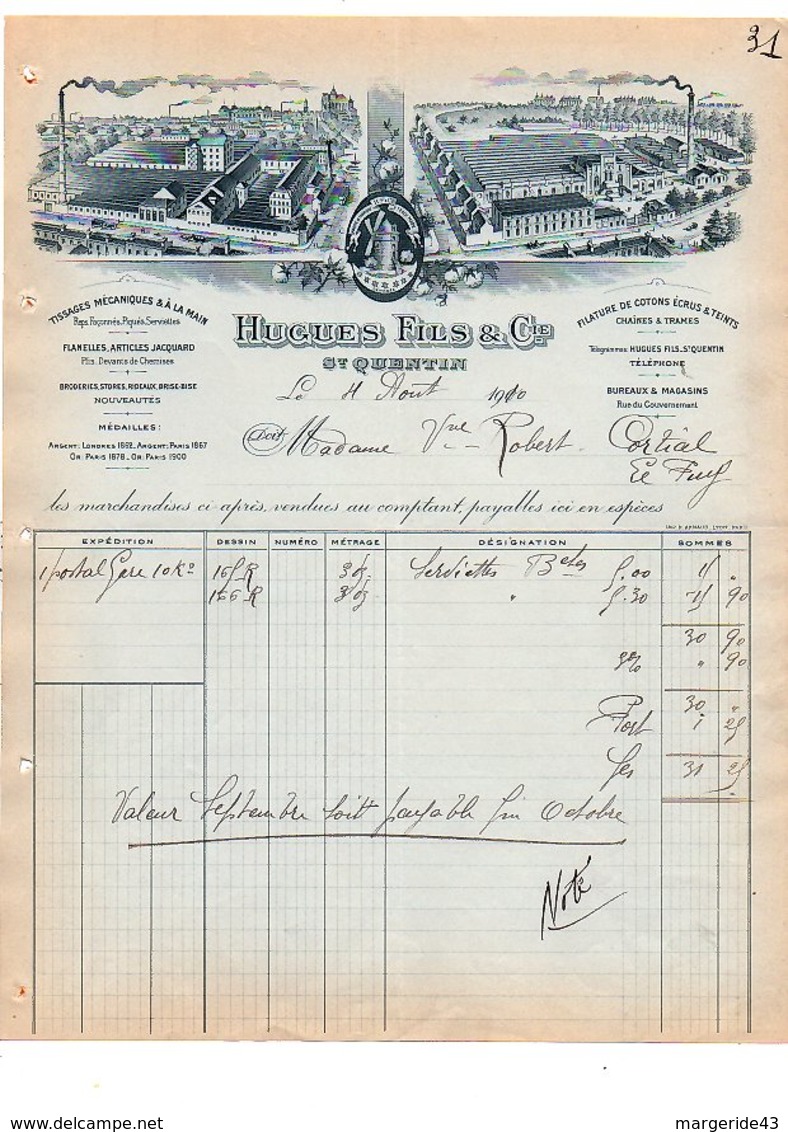 31
TISSAGES MÉCANIQUES & À LA MAIN
Reps, Façonnés, Piqués, Serviettes
FLANELLES, ARTICLES JACQUARD
Plis. Devants de Chemises
BRODERIES, STORES, RIDEAUX, BRISE-BISE
NOUVEAUTÉS
MÉDAILLES:
ARGENT: LONDRES 1862. ARGENT: PARIS 1867
OR: PARIS 1878. OR: PARIS 1900
HUGUES FILS & CIE
ST QUENTIN
FILATURE DE COTONS ÉCRUS & TEINTS
CHAÎNES & TRAMES
Télégrammes: HUGUES FILS. ST QUENTIN
TÉLÉPHONE
BUREAUX & MAGASINS
Rue du Gouvernement
Le 4 Août 1910
Doit Madame Vve Robert Cortial
Le Puy
les marchandises ci après, vendues au comptant, payables ici en espèces
EXPÉDITION DESSIN NUMÉRO MÉTRAGE DÉSIGNATION SOMMES
1 postal Gare 10 Ko 165 R 3 dz. Serviettes 5.00 15 "
166 R 3 dz " 5.30 15 90
30 90
3% " 90
30 "
Port 1 25
31 25
Valeur Septembre soit payable fin Octobre
Noté
margeride43